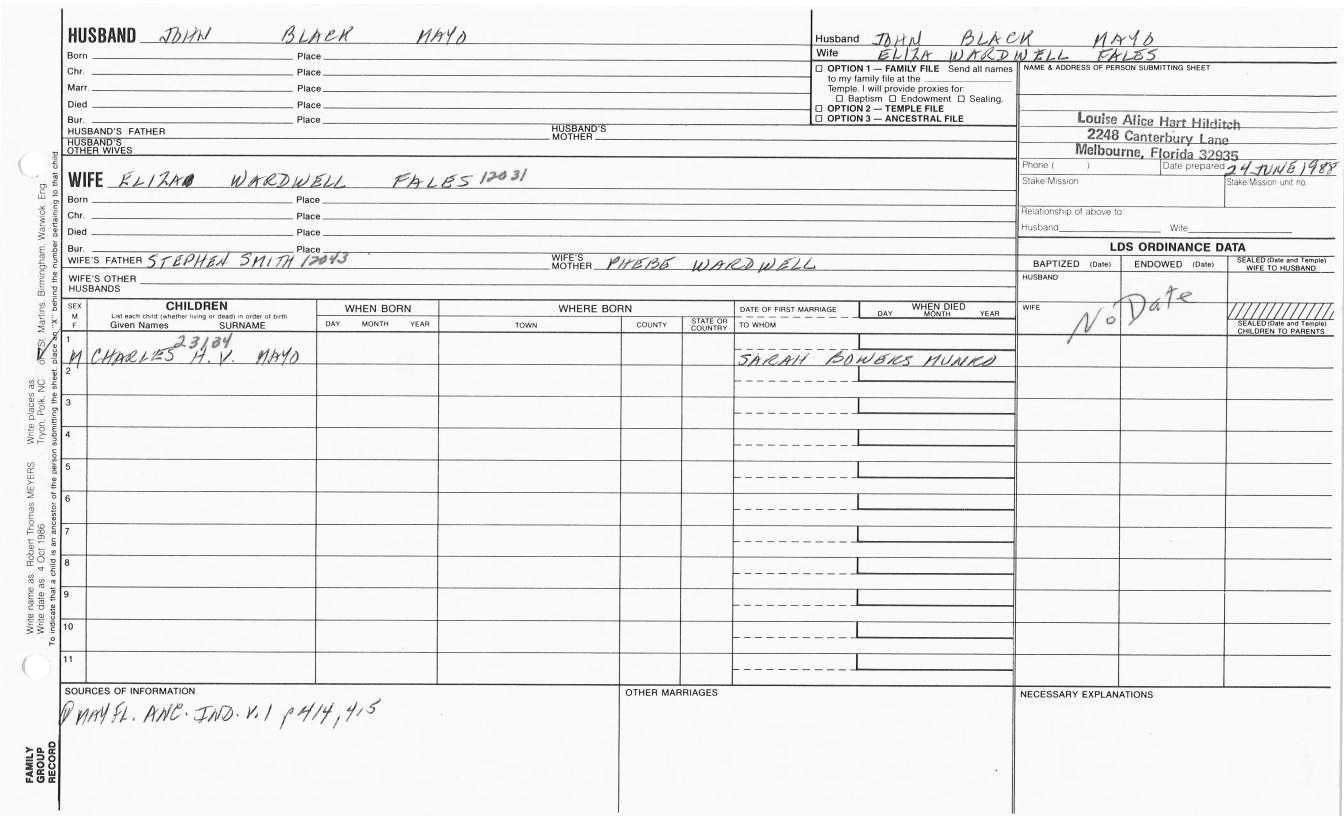 HUSBAND JOHN BLACK MAYO
Born Place
Chr. Place
Marr. Place
Died Place
Bur. Place
HUSBAND'S FATHER HUSBAND'S MOTHER
HUSBAND'S OTHER WIVES
Husband JOHN BLACK MAYO
Wife ELIZA WARDWELL FALES
☐ OPTION 1 — FAMILY FILE Send all names
to my family file at the
Temple. I will provide proxies for:
☐ Baptism ☐ Endowment ☐ Sealing.
☐ OPTION 2 — TEMPLE FILE
☐ OPTION 3 — ANCESTRAL FILE
NAME & ADDRESS OF PERSON SUBMITTING SHEET
Louise Alice Hart Hilditch
2248 Canterbury Lane
Melbourne, Florida 32935
Phone ( ) Date prepared 24 JUNE 1988
Stake/Mission Stake/Mission unit no.
Relationship of above to:
Husband Wife
WIFE ELIZA WARDWELL FALES 12031
Born Place
Chr. Place
Died Place
Bur. Place
WIFE'S FATHER STEPHEN SMITH 12043 WIFE'S MOTHER PHEBE WARDWELL
WIFE'S OTHER HUSBANDS
LDS ORDINANCE DATA
BAPTIZED (Date) ENDOWED (Date) SEALED (Date and Temple) WIFE TO HUSBAND
HUSBAND
WIFE
No Date
SEALED (Date and Temple) CHILDREN TO PARENTS
SEX M F
CHILDREN
List each child (whether living or dead) in order of birth
Given Names SURNAME
WHEN BORN
DAY MONTH YEAR
WHERE BORN
TOWN COUNTY STATE OR COUNTRY
DATE OF FIRST MARRIAGE
TO WHOM
WHEN DIED
DAY MONTH YEAR
1
23134
M CHARLES H. V. MAYO SARAH BOWERS MUNRO
2
3
4
5
6
7
8
9
10
11
SOURCES OF INFORMATION
MAYFL. ANC. IND. V. 1 p 414, 415
OTHER MARRIAGES
NECESSARY EXPLANATIONS
Write name as: Robert Thomas MEYERS Write places as: Tryon, Polk, NC
Write date as: 4 Oct 1986 or St. Martins, Birmingham, Warwick, Eng.
To indicate that a child is an ancestor of the person submitting the sheet, place an "X" behind the number pertaining to that child.
FAMILY
GROUP
RECORD